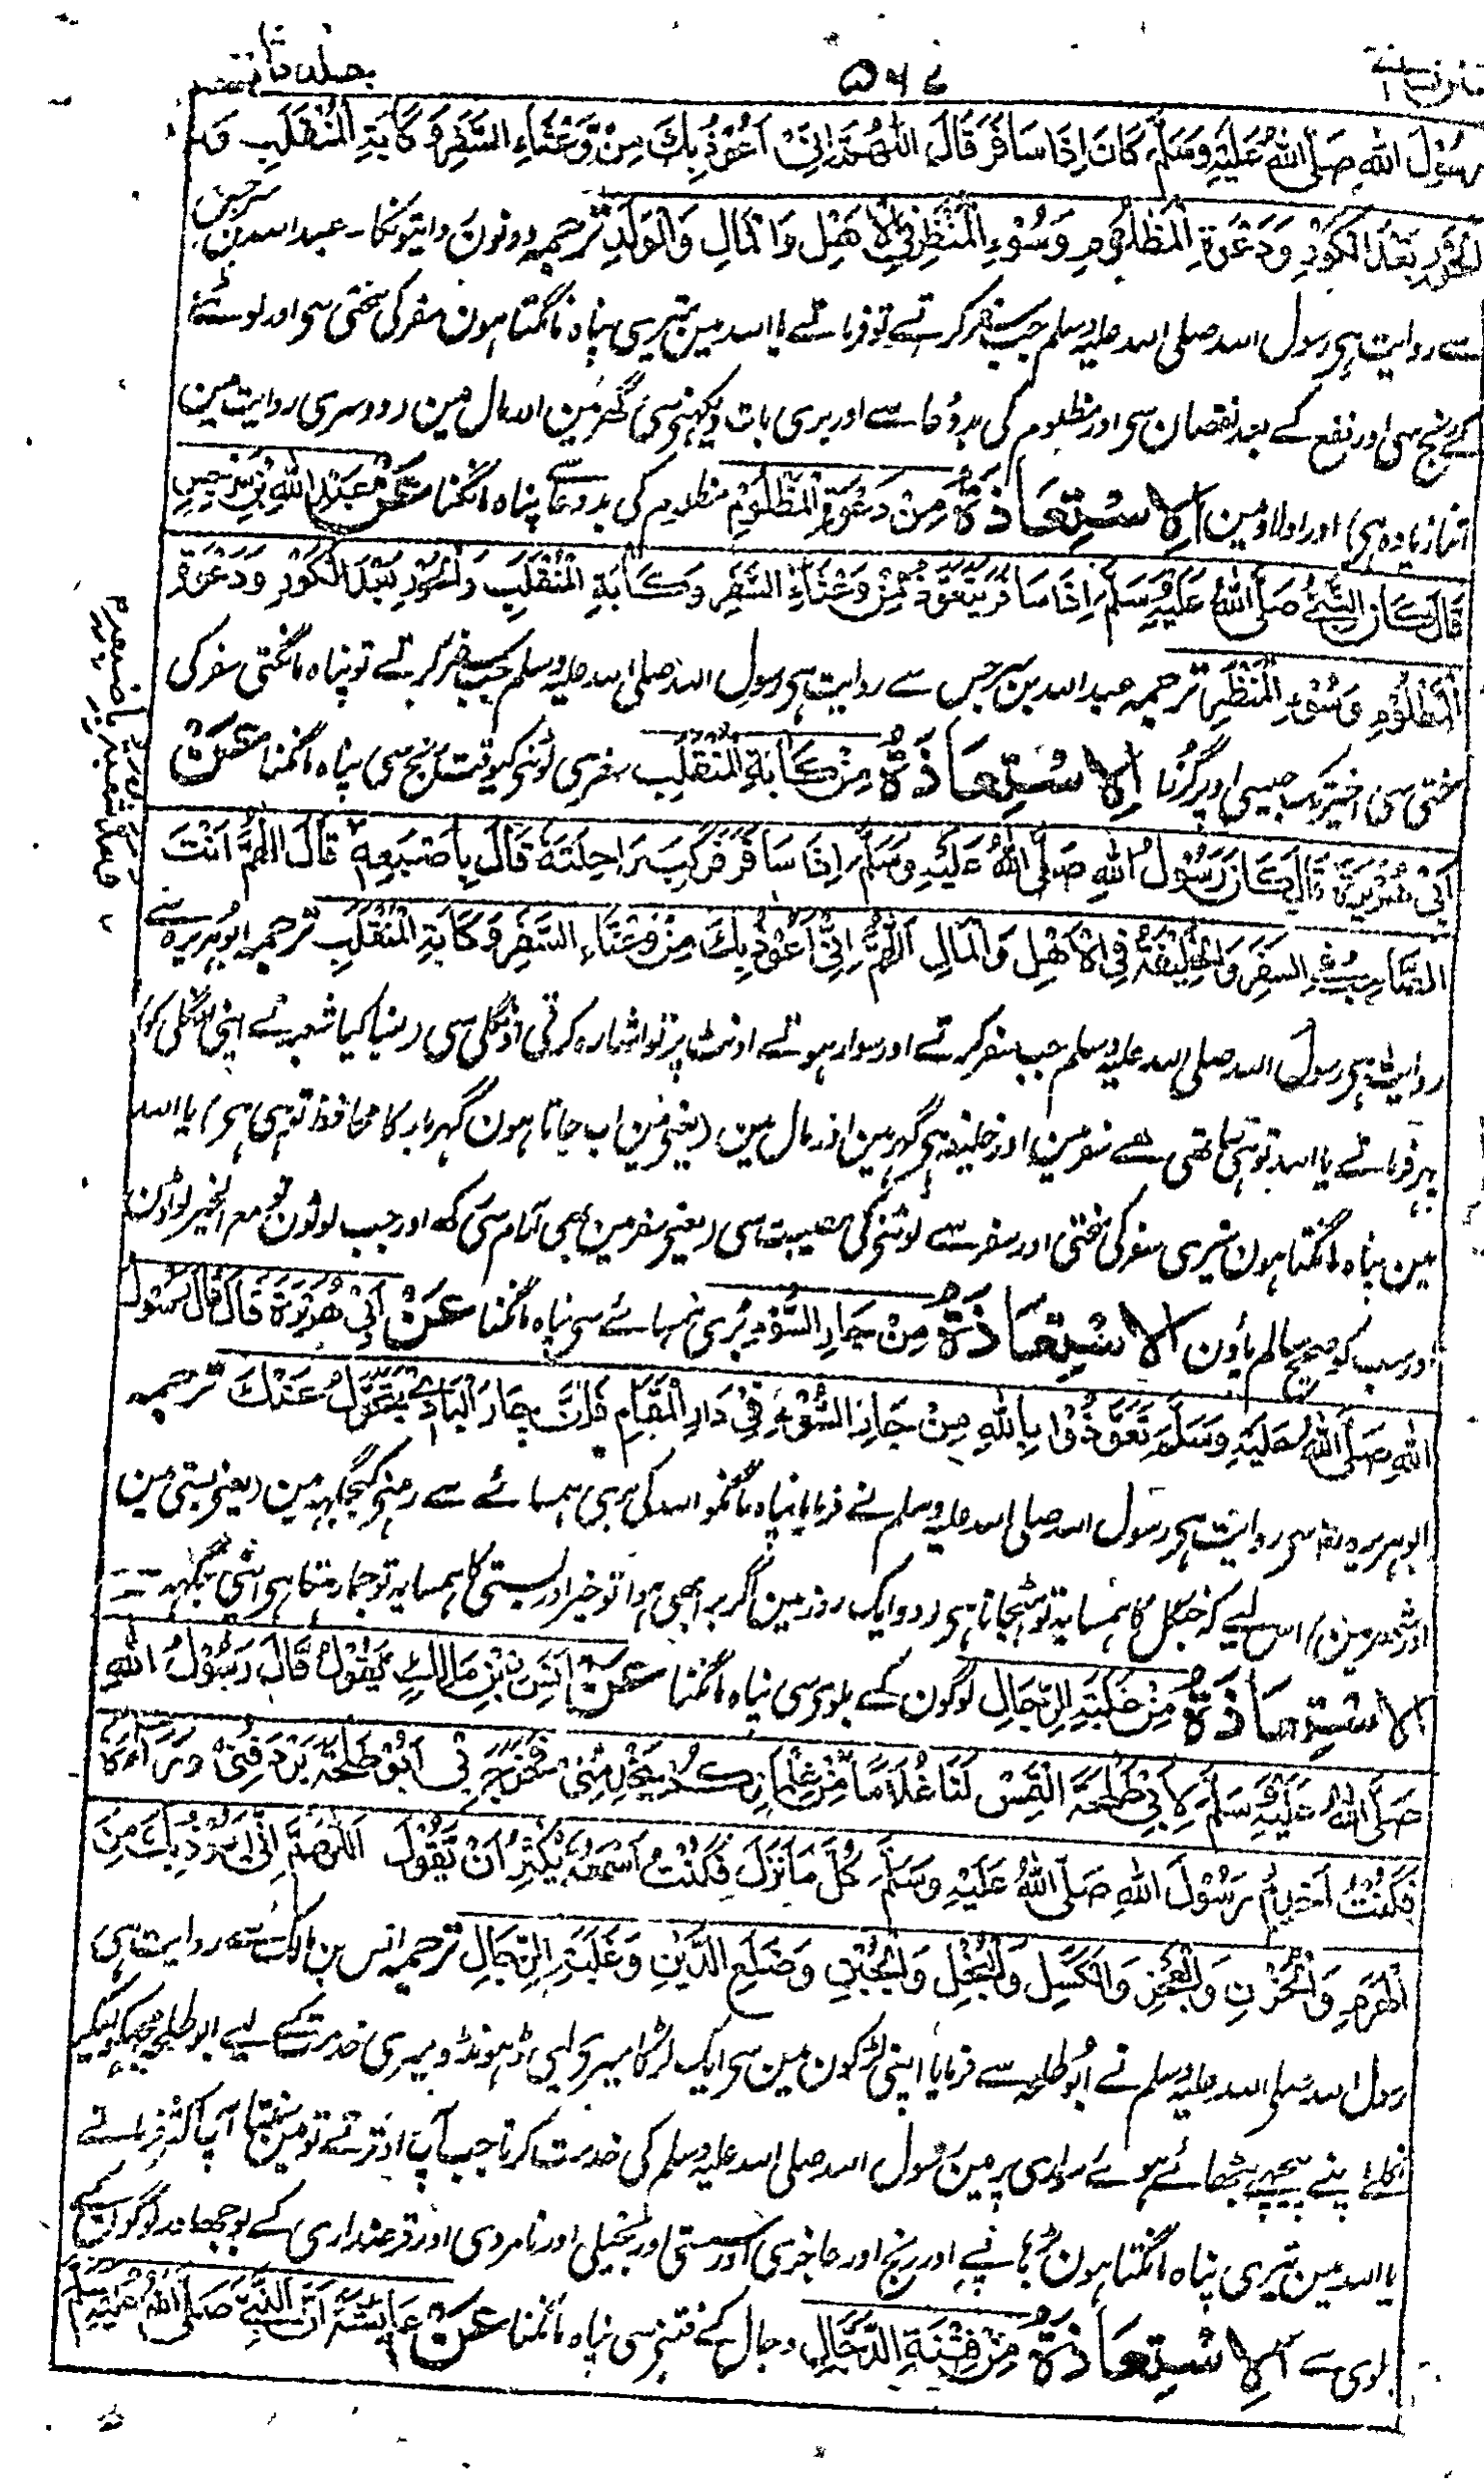 ۵۶۷
رَسُوْلَ اللهِ صَلَّى اللهُ عَلَيْهِ وَسَلَّمَ كَانَ اِذَا سَافَرَ قَالَ اللّٰهُمَّ اِنِّىْ اَعُوْذُ بِكَ مِنْ وَّعْثَاءِ السَّفَرِ وَكَاٰبَةِ الْمُنْقَلَبِ وَ
الْحَوْرِ بَعْدَ الْكَوْرِ وَدَعْوَةِ الْمَظْلُوْمِ وَسُوْءِ الْمَنْظَرِ فِى الْاَهْلِ وَالْمَالِ وَالْوَلَدِ ترجمہ دونون روایتونکا۔ عبد اللہ بن سرجس
سے روایت ہی رسول اللہ صلی اللہ علیہ وسلم جب سفر کرتے تو فرماتے یا اللہ مین تیری پناہ مانگتا ہون سفر کی سختی سی اور لوٹنے
کے رنج سی اور نفع کے بعد نقصان سی اور مظلوم کی بددعا سے اور بری بات دیکھنے سی گھر مین اور مال مین (دوسری روایت مین
اتنا زیادہ ہی) اور اولاد مین اَلْاِسْتِعَاذَةُ مِنْ دَعْوَةِ الْمَظْلُوْمِ مظلوم کی بددعا سے پناہ مانگنا عَنْ عَبْدِ اللهِ بْنِ سَرْجِسَ
قَالَ كَانَ النَّبِىُّ صَلَّى اللهُ عَلَيْهِ وَسَلَّمَ اِذَا سَافَرَ يَتَعَوَّذُ مِنْ وَعْثَاءِ السَّفَرِ وَكَاٰبَةِ الْمُنْقَلَبِ وَالْحَوْرِ بَعْدَ الْكَوْرِ وَدَعْوَةِ
الْمَظْلُوْمِ وَسُوْءِ الْمَنْظَرِ ترجمہ عبد اللہ بن سرجس سے روایت ہی رسول اللہ صلی اللہ علیہ وسلم جب سفر کرتے تو پناہ مانگتی سفر کی
سختی سی اخیر تک جیسی اوپر گزرا اَلْاِسْتِعَاذَةُ مِنْ كَاٰبَةِ الْمُنْقَلَبِ سفر سی لوٹنے کیوقت رنج سی پناہ مانگنا عَنْ
اَبِىْ هُرَيْرَةَ قَالَ كَانَ رَسُوْلُ اللهِ صَلَّى اللهُ عَلَيْهِ وَسَلَّمَ اِذَا سَافَرَ فَرَكِبَ رَاحِلَتَهٗ قَالَ بِاِصْبَعِهٖ قَالَ اللّٰهُمَّ اَنْتَ
الصَّاحِبُ فِى السَّفَرِ وَالْخَلِيْفَةُ فِى الْاَهْلِ وَالْمَالِ اَللّٰهُمَّ اِنِّىْ اَعُوْذُ بِكَ مِنْ وَعْثَاءِ السَّفَرِ وَكَاٰبَةِ الْمُنْقَلَبِ ترجمہ ابو ہریرہ سے
روایت ہی رسول اللہ صلی اللہ علیہ وسلم جب سفر کرتے اور سوار ہوتے اونٹ پر تو اشارہ کرتی اونگلی سی (لنبا کیا شعبہ نے اپنی اونگلی کو)
پہر فرماتے یا اللہ تو ہی ساتھی ہے سفر مین اور خلیفہ ہی گہر مین اور مال مین (یعنی مین اب جاتا ہون گہر بار کا محافظ تو ہی ہی) یا اللہ
مین پناہ مانگتا ہون تیری سفر کی سختی اور سفر سے لوٹنے کی مصیبت سی (یعنی سفر مین بھی آرام سی رکھ اور جب لوٹون تو مع الخیر لوٹون
اور سب کو صحیح سالم پاؤن اَلْاِسْتِعَاذَةُ مِنْ جَارِ السُّوْءِ بُری ہمسائے سی پناہ مانگنا عَنْ اَبِىْ هُرَيْرَةَ قَالَ قَالَ رَسُوْلُ
اللهِ صَلَّى اللهُ عَلَيْهِ وَسَلَّمَ تَعَوَّذُوْا بِاللهِ مِنْ جَارِ السُّوْءِ فِىْ دَارِ الْمُقَامِ فَاِنَّ جَارَ الْبَادِيْ يَتَحَوَّلُ عَنْكَ ترجمہ
ابو ہریرہ رضہ سی روایت ہی رسول اللہ صلی اللہ علیہ وسلم نے فرمایا پناہ مانگو اللہ کی بری ہمسائے سے رہنی کیجگہ مین (یعنی بستی مین
اور شہر مین) اس لیے کہ جنگل کا ہمسایہ تو ہٹجاتا ہی (دو ایک روز مین اگر برا بھی ہوا تو خیر اور بستی کا ہمسایہ تو جما رہتا ہی اپنی جگہہ
اَلْاِسْتِعَاذَةُ مِنْ غَلَبَةِ الرِّجَالِ لوگون کے بلوی سی پناہ مانگنا عَنْ اَنَسِ بْنِ مَالِكٍ يَقُوْلُ قَالَ رَسُوْلُ اللهِ
صَلَّى اللهُ عَلَيْهِ وَسَلَّمَ لِاَبِىْ طَلْحَةَ الْتَمِسْ لَنَا غُلَامًا مِّنْ غِلْمَانِكُمْ يَخْدِمُنِىْ فَخَرَجَ بِىْ اَبُوْ طَلْحَةَ يَرْدِفُنِىْ وَرَاءَهٗ
فَكُنْتُ اَخْدِمُ رَسُوْلَ اللهِ صَلَّى اللهُ عَلَيْهِ وَسَلَّمَ كُلَّ مَا نَزَلَ فَكُنْتُ اَسْمَعُهٗ يُكْثِرُ اَنْ يَّقُوْلَ اَللّٰهُمَّ اِنِّىْ اَعُوْذُ بِكَ مِنَ
الْهَرَمِ وَالْحُزْنِ وَالْعَجْزِ وَالْكَسَلِ وَالْبُخْلِ وَالْجُبْنِ وَضَلَعِ الدَّيْنِ وَغَلَبَةِ الرِّجَالِ ترجمہ انس بن مالک سے روایت ہی
رسول اللہ صلی اللہ علیہ وسلم نے ابو طلحہ سے فرمایا اپنی لڑکون مین سی ایک لڑکا میری لیی ڈہونڈو میری خدمت کے لیے ابو طلحہ مجہکو لیکر
نکلے اپنے پیچھے بٹھائے ہوئے سواری پر مین رسول اللہ صلی اللہ علیہ وسلم کی خدمت کرتا جب آپ اوترتے تو مین سنتا آپ اکثر فرماتے
یا اللہ مین تیری پناہ مانگتا ہون بڑہاپے اور رنج اور عاجزی اور سستی اور بخیلی اور نامردی اور قرضداری کے بوجھ اور لوگون کے
بلوی سے اَلْاِسْتِعَاذَةُ مِنْ فِتْنَةِ الدَّجَّالِ دجال کے فتنے سی پناہ مانگنا عَنْ عَائِشَةَ اَنَّ النَّبِىَّ صَلَّى اللهُ عَلَيْهِ وَسَلَّمَ